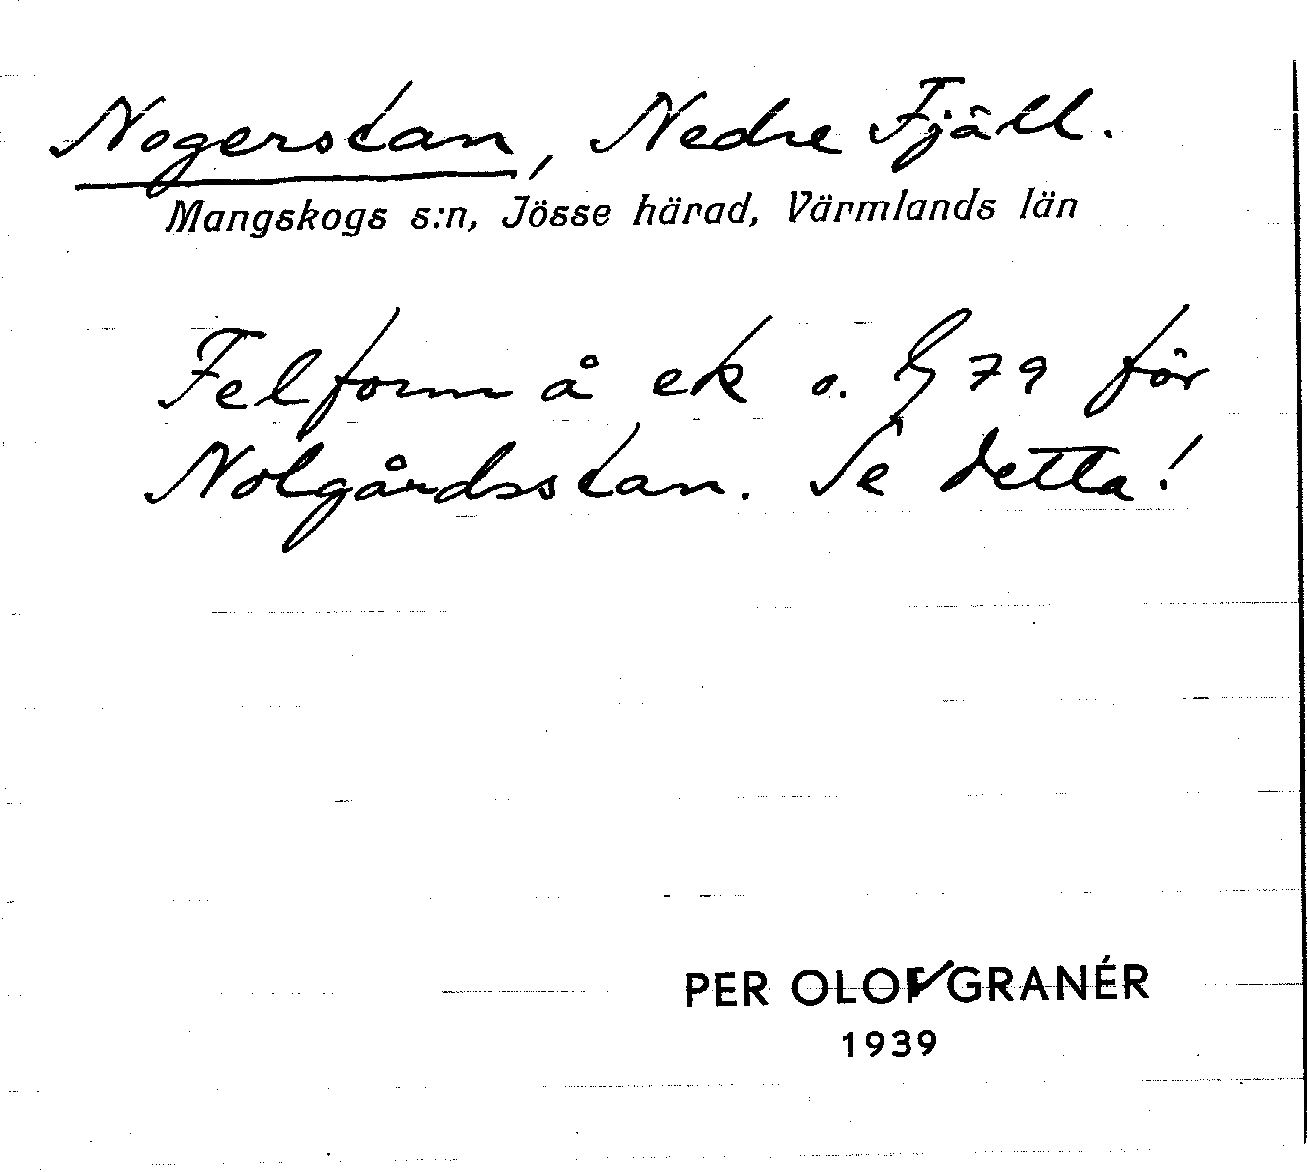 Nogerstan, Nedre Fjäll.
Mangskogs s:n, Jösse härad, Värmlands län
Felform å ek o. 79 för
Nolgårdsstan. Se detta!
PER OLOF GRANÉR
1939